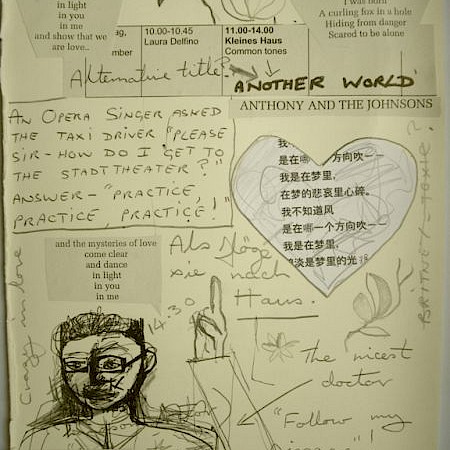 in light
in you
in me
and show that we
are love..
ag,
mber
10.00-10.45
Laura Delfino
11.00-14.00
Kleines Haus
Common tones
I was born
A curling fox in a hole
Hiding from danger
Scared to be alone
Alternative title?
ANOTHER WORLD
ANTHONY AND THE JOHNSONS
AN OPERA SINGER ASKED
THE TAXI DRIVER "PLEASE
SIR - HOW DO I GET TO
THE STADTTHEATER?"
ANSWER - "PRACTICE,
PRACTICE, PRACTICE!"
我
是在哪 方向吹——
我是在梦里,
在梦的悲哀里心碎。
我不知道风
是在哪一个方向吹——
我是在梦里,
淡是梦里的光
BRITNEY - TOXIC?
and the mysteries of love
come clear
and dance
in light
in you
in me
Als flöge
sie nach
Haus.
14.30
Crazy in love
The nicest
doctor
"Follow my